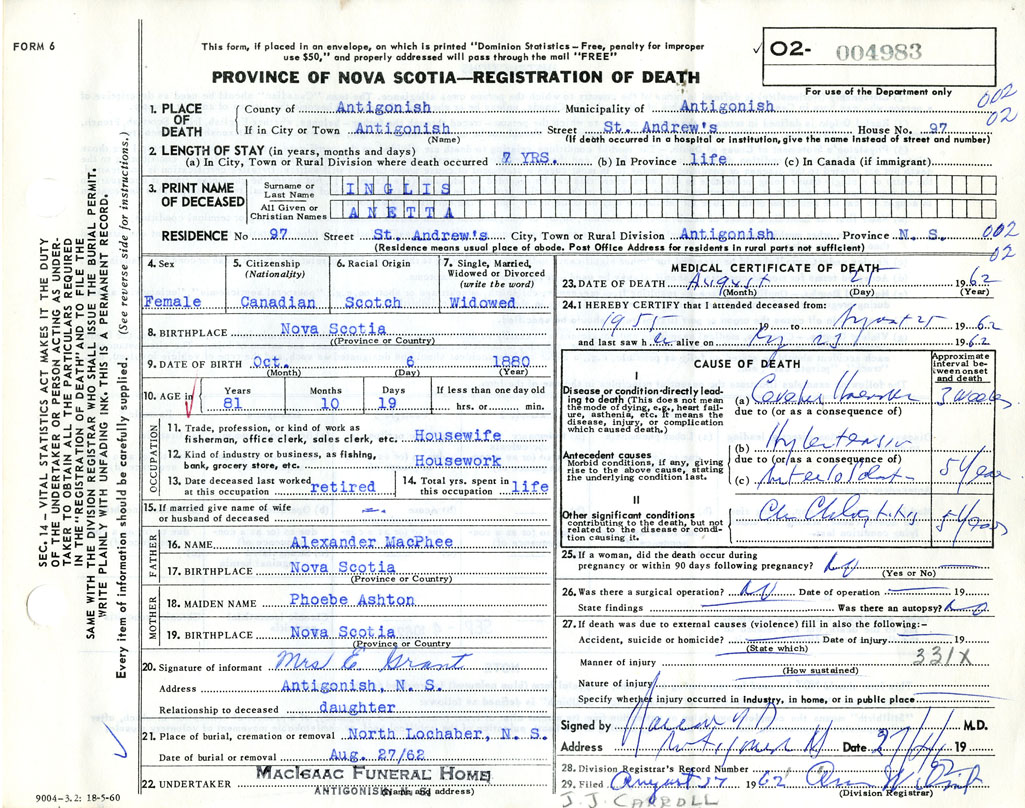 FORM 6
This form, if placed in an envelope, on which is printed "Dominion Statistics – Free, penalty for improper
use $50," and properly addressed will pass through the mail "FREE"
02- 004983
PROVINCE OF NOVA SCOTIA—REGISTRATION OF DEATH
For use of the Department only
002
02
1. PLACE OF DEATH County of Antigonish Municipality of Antigonish
If in City or Town Antigonish Street St. Andrew's House No. 97
(Name) (If death occurred in a hospital or institution, give the name instead of street and number)
2. LENGTH OF STAY (in years, months and days)
(a) In City, Town or Rural Division where death occurred 7 YRS. (b) In Province life (c) In Canada (if immigrant)
3. PRINT NAME OF DECEASED Surname or Last Name INGLIS
All Given or Christian Names ANETTA
RESIDENCE No 97 Street St. Andrew's City, Town or Rural Division Antigonish Province N. S. 002
(Residence means usual place of abode. Post Office Address for residents in rural parts not sufficient) 02
4. Sex 5. Citizenship (Nationality) 6. Racial Origin 7. Single, Married, Widowed or Divorced (write the word)
Female Canadian Scotch Widowed
8. BIRTHPLACE Nova Scotia
(Province or Country)
9. DATE OF BIRTH Oct. 6 1880
(Month) (Day) (Year)
10. AGE in Years Months Days If less than one day old
81 10 19 hrs. or min.
OCCUPATION
11. Trade, profession, or kind of work as
fisherman, office clerk, sales clerk, etc. Housewife
12. Kind of industry or business, as fishing,
bank, grocery store, etc. Housework
13. Date deceased last worked at this occupation retired 14. Total yrs. spent in this occupation life
15. If married give name of wife
or husband of deceased
FATHER
16. NAME Alexander MacPhee
17. BIRTHPLACE Nova Scotia
(Province or Country)
MOTHER
18. MAIDEN NAME Phoebe Ashton
19. BIRTHPLACE Nova Scotia
(Province or Country)
20. Signature of informant Mrs E. Grant
Address Antigonish, N. S.
Relationship to deceased daughter
21. Place of burial, cremation or removal North Lochaber, N. S.
Date of burial or removal Aug. 27/62
22. UNDERTAKER MACISAAC FUNERAL HOME
ANTIGONISH, N. S.
(Name and address)
9004–3.2: 18-5-60
SEC. 14 – VITAL STATISTICS ACT MAKES IT THE DUTY
OF THE UNDERTAKER OR PERSON ACTING AS UNDER-
TAKER TO OBTAIN ALL THE PARTICULARS REQUIRED
IN THE "REGISTRATION OF DEATH" AND TO FILE THE
SAME WITH THE DIVISION REGISTRAR WHO SHALL ISSUE THE BURIAL PERMIT.
WRITE PLAINLY WITH UNFADING INK. THIS IS A PERMANENT RECORD.
Every item of information should be carefully supplied. (See reverse side for instructions.)
MEDICAL CERTIFICATE OF DEATH
23. DATE OF DEATH August 25 1962
(Month) (Day) (Year)
24. I HEREBY CERTIFY that I attended deceased from:
1955 19 to August 25 1962
and last saw her alive on 1962
CAUSE OF DEATH
Approximate interval between onset and death
I
Disease or condition directly leading to death (This does not mean the mode of dying, e.g., heart failure, asthenia, etc. It means the disease, injury, or complication which caused death.)
(a) 3 weeks
due to (or as a consequence of)
(b) Hypertension
Antecedent causes
Morbid conditions, if any, giving rise to the above cause, stating the underlying condition last.
due to (or as a consequence of)
(c) 5 year
II
Other significant conditions
contributing to the death, but not related to the disease or condition causing it.
5 years
25. If a woman, did the death occur during
pregnancy or within 90 days following pregnancy? No
(Yes or No)
26. Was there a surgical operation? No Date of operation 19
State findings Was there an autopsy? No
27. If death was due to external causes (violence) fill in also the following:–
Accident, suicide or homicide? Date of injury 19
(State which)
331X
Manner of injury
(How sustained)
Nature of injury
Specify whether injury occurred in industry, in home, or in public place
Signed by M.D.
Address Antigonish Date 19
28. Division Registrar's Record Number
29. Filed August 27 1962
(Division Registrar)
J.J. CARROLL